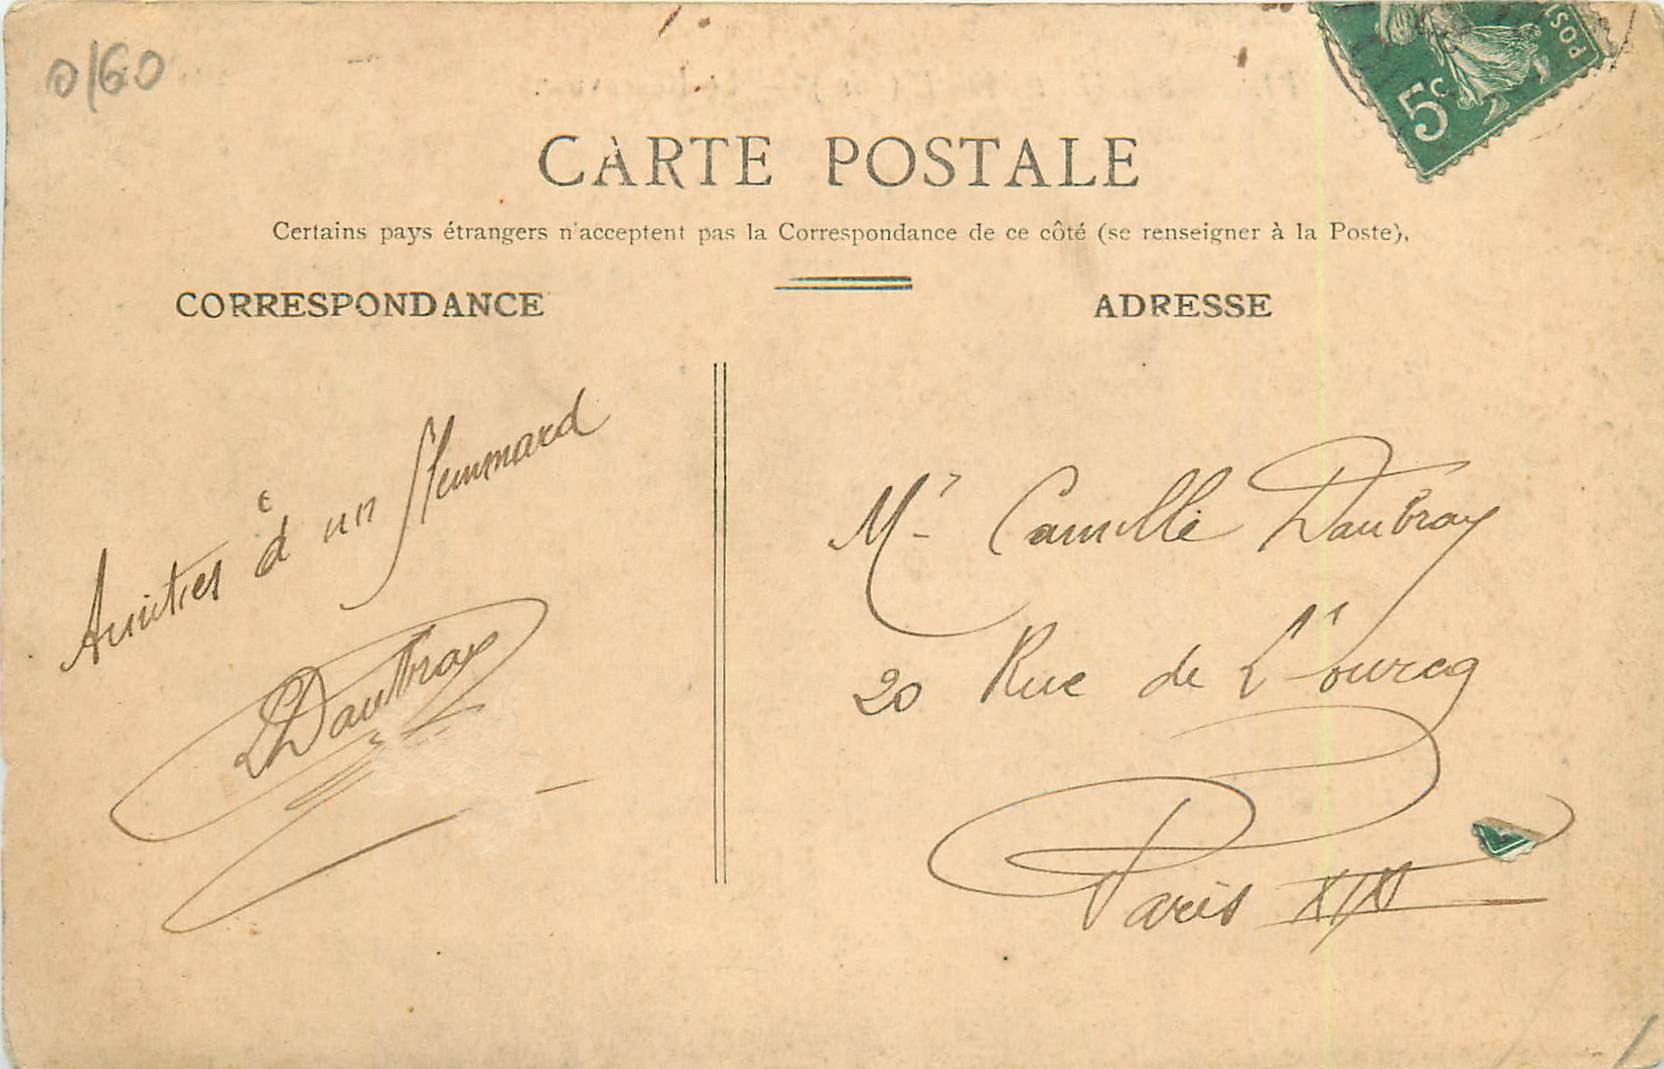 0/60
POST
5c
CARTE POSTALE
Certains pays étrangers n'acceptent pas la Correspondance de ce côté (se renseigner à la Poste),
CORRESPONDANCE
ADRESSE
Amitiés d'un flemmard
Daubray
Mr Camille Daubray
20 Rue de L'ourcq
Paris XIX